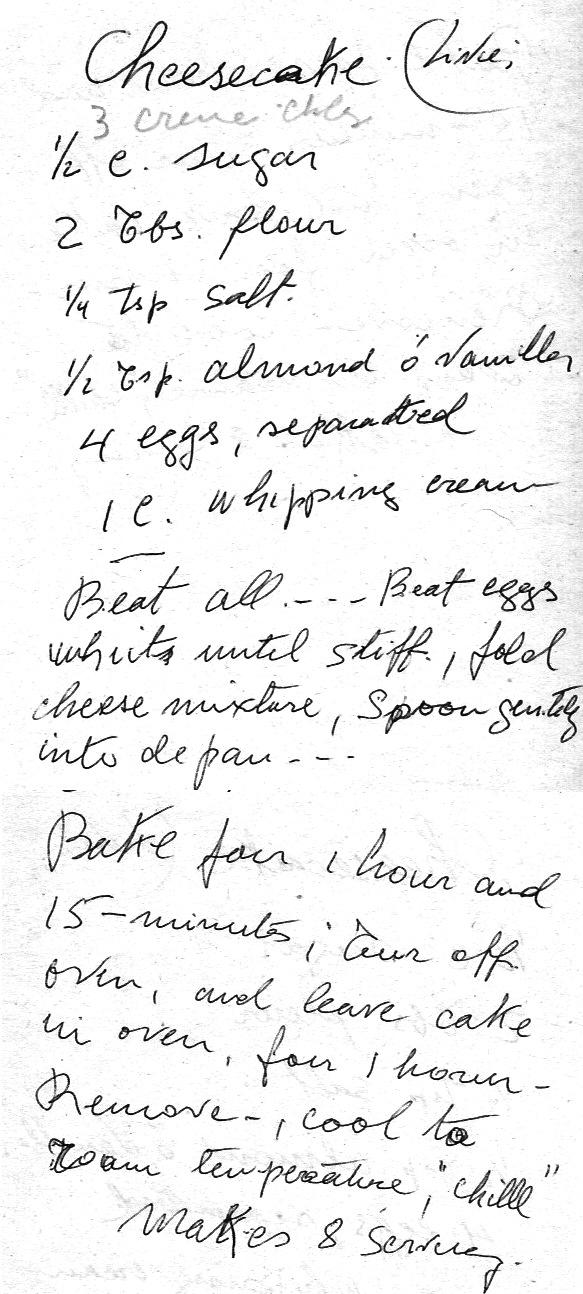 Cheesecake.
3 creme
1/2 c. sugar
2 Tbs. flour
1/4 tsp salt.
1/2 Tsp. almond ó Vanilla
4 eggs, separatted
1 C. whipping cream
Beat all.--- Beat eggs
whits until stiff., fold
cheese mixture, Spoon gently
into de pan ---
Bake four 1 hour and
15-minutes; Tur off
oven, and leave cake
in oven, four 1 hour-
Remove-, cool to
room temperature, "chille"
Makes 8 Serving.